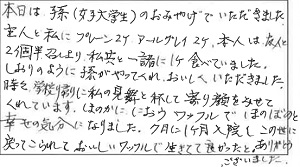 本日は、孫(女子大学生)のおみやげでいただきました。
主人と私にプレーン2ケ アールグレイ2ケ、本人は友人と
2個半召し上り、私共と一諸に1ケ食べていました。
しおりのように孫がやってくれ、おいしくいただきました。
時々 学校帰りに私の見舞と称して寄り顔をみせて
くれています。ほのかに におう ワッフルで ほのぼのと
幸せの気分になりました。 7月に1ケ月入院し この世に
戻ってこられて おいしいワッフルで 生きてて良かったと ありがとう
ございました。